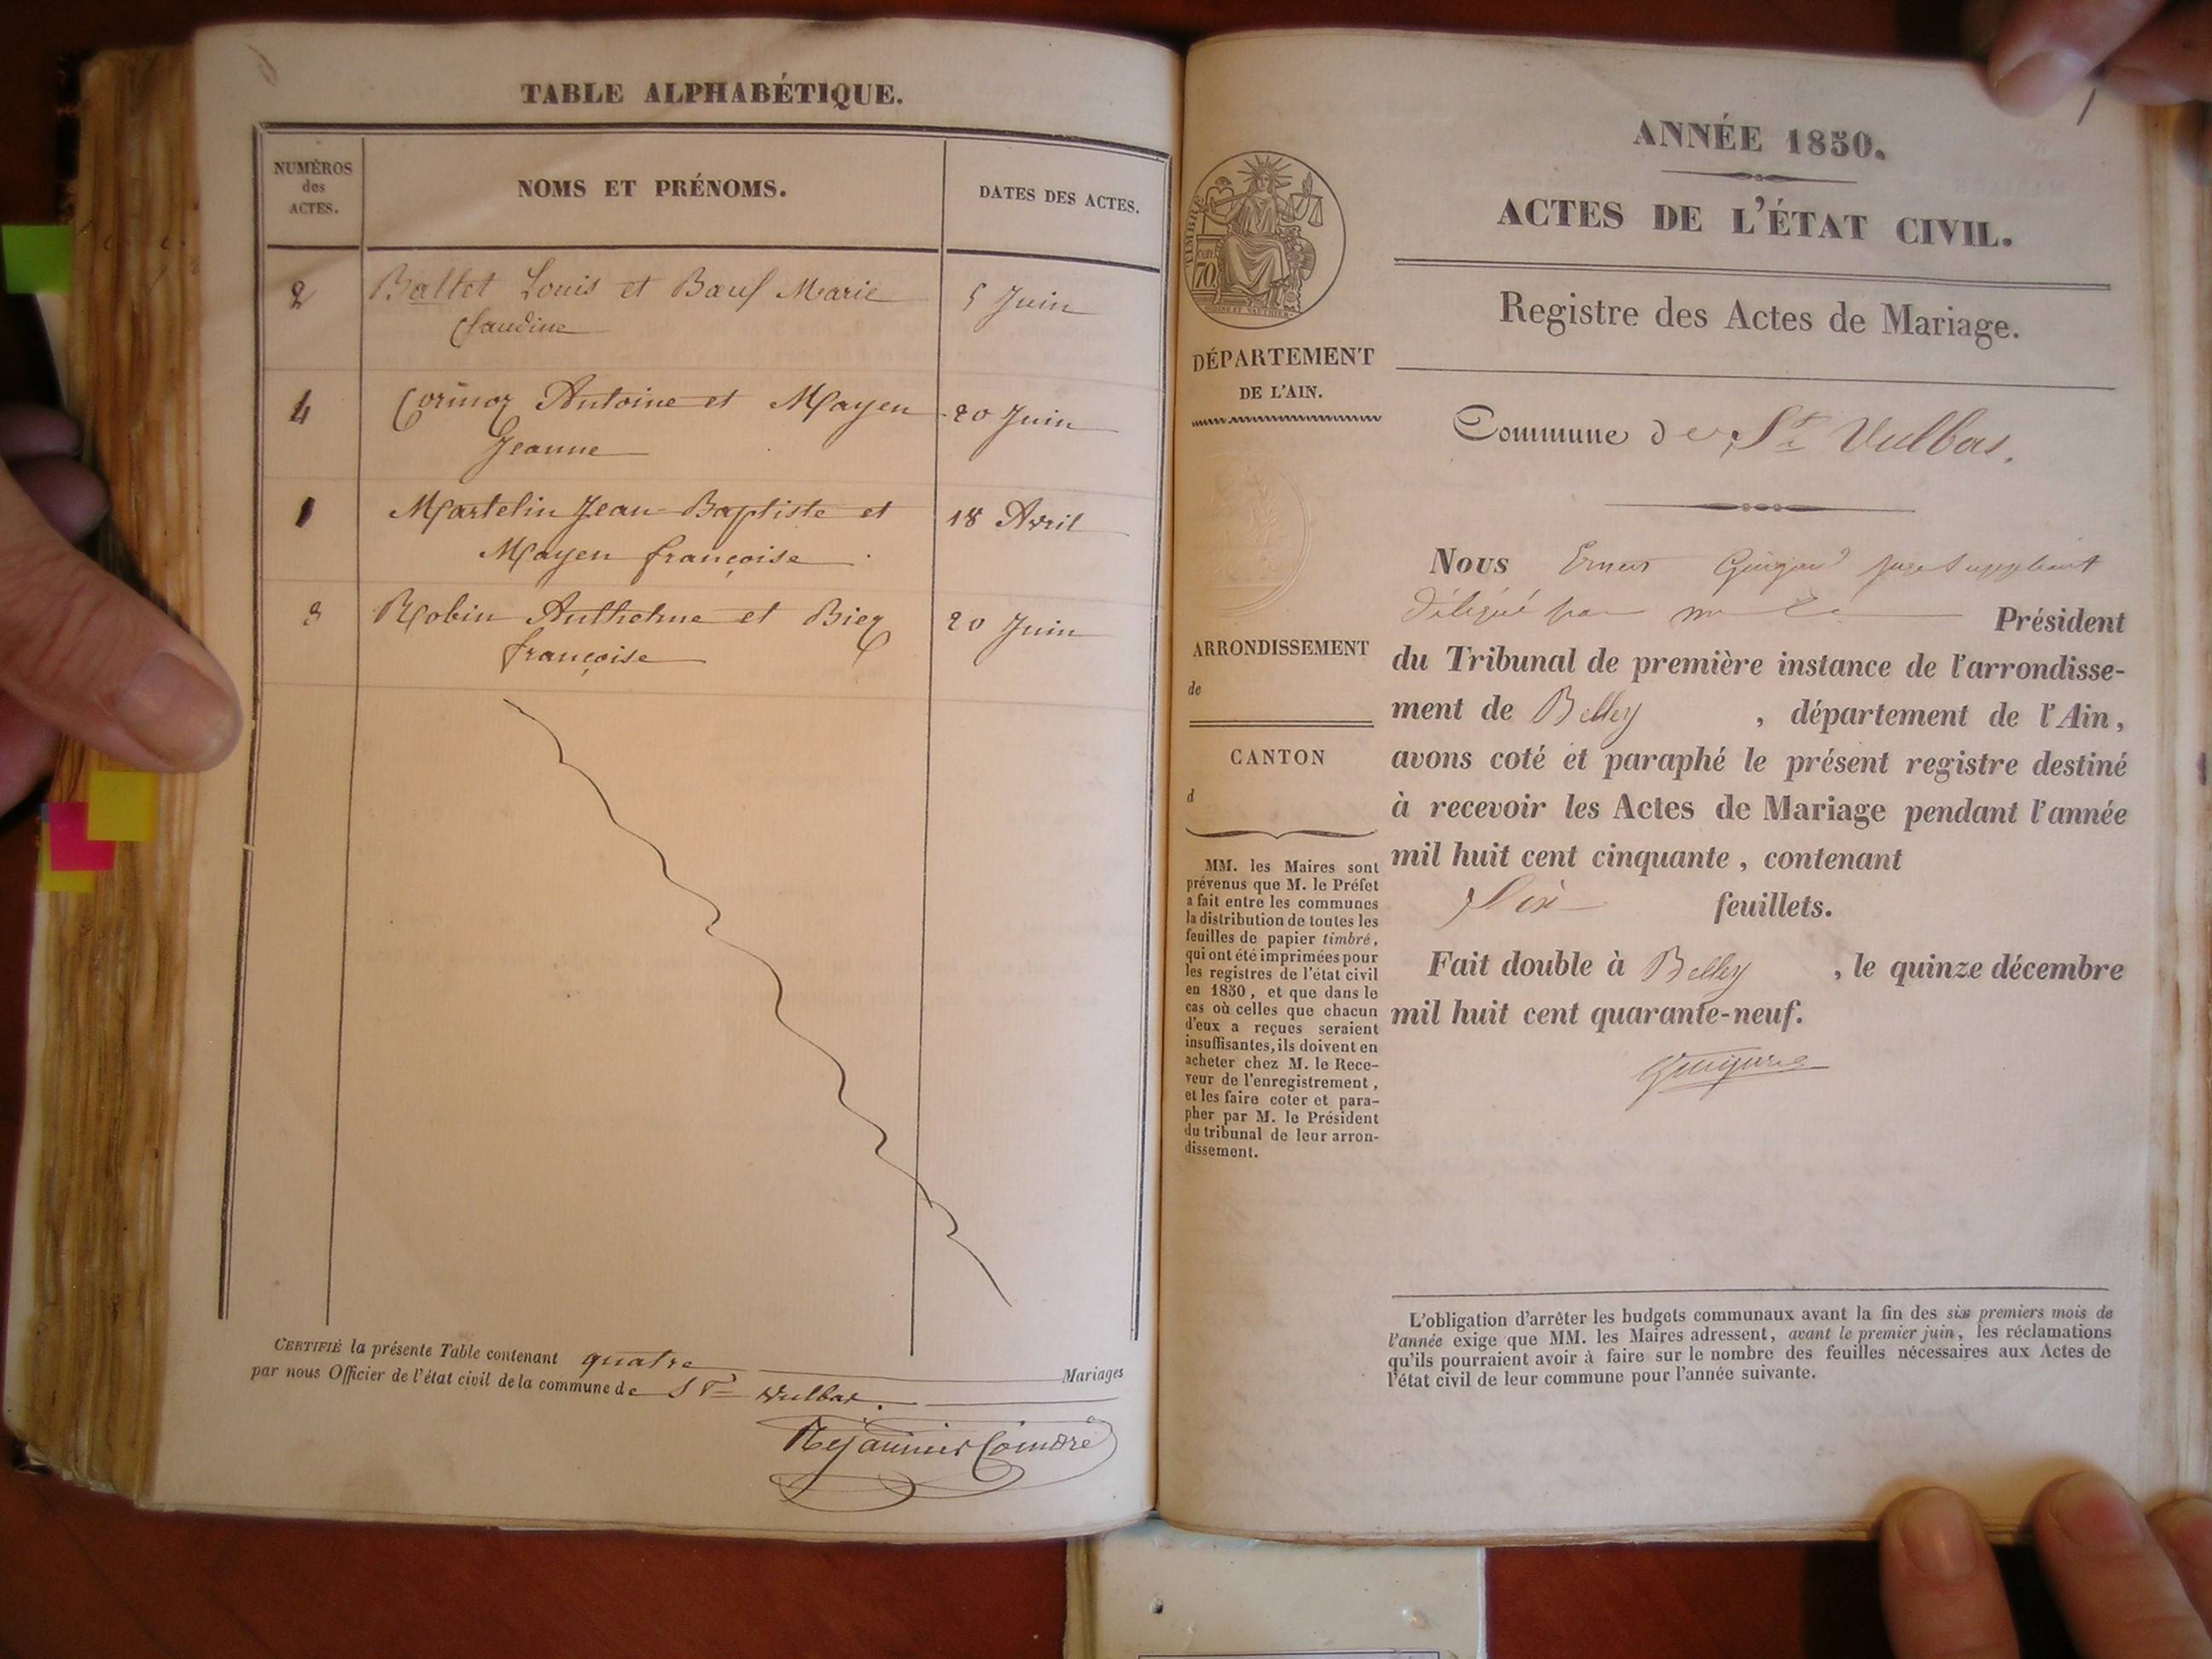 TABLE ALPHABÉTIQUE.
NUMÉROS
des
ACTES.
NOMS ET PRÉNOMS.
DATES DES ACTES.
2 Ballet Louis et Bœuf Marie 5 Juin
Claudine
4 Antoine et Mayen 20 Juin
Jeanne
1 Martelin Jean Baptiste et 18 Avril
Mayen françoise
3 Robin Anthelme et 20 Juin
françoise
CERTIFIÉ la présente Table contenant quatre Mariages
par nous Officier de l'état civil de la commune de St Vulbas.
ANNÉE 1850.
ACTES DE L'ÉTAT CIVIL.
Registre des Actes de Mariage.
TIMBRE
70
DÉPARTEMENT
DE L'AIN.
ARRONDISSEMENT
de
CANTON
d
MM. les Maires sont
prévenus que M. le Préfet
a fait entre les communes
la distribution de toutes les
feuilles de papier timbré,
qui ont été imprimées pour
les registres de l'état civil
en 1850, et que dans le
cas où celles que chacun
d'eux a reçues seraient
insuffisantes, ils doivent en
acheter chez M. le Rece-
veur de l'enregistrement,
et les faire coter et para-
pher par M. le Président
du tribunal de leur arron-
dissement.
Commune de St Vulbas.
Nous juge Suppléant
Délégué par Président
du Tribunal de première instance de l'arrondisse-
ment de Belley , département de l'Ain,
avons coté et paraphé le présent registre destiné
à recevoir les Actes de Mariage pendant l'année
mil huit cent cinquante, contenant
Six feuillets.
Fait double à Belley , le quinze décembre
mil huit cent quarante-neuf.
L'obligation d'arrêter les budgets communaux avant la fin des six premiers mois de
l'année exige que MM. les Maires adressent, avant le premier juin, les réclamations
qu'ils pourraient avoir à faire sur le nombre des feuilles nécessaires aux Actes de
l'état civil de leur commune pour l'année suivante.